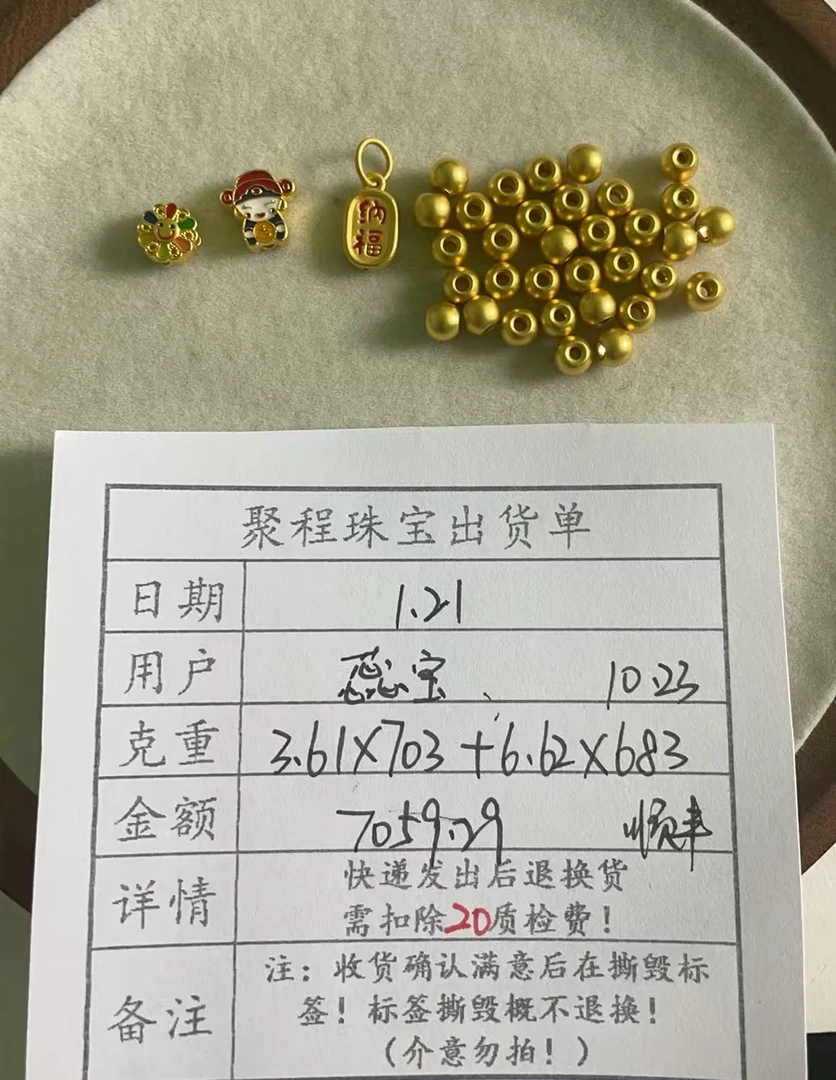 纳
福
聚程珠宝出货单
日期 1.21
用户 蕊宝 10.23
克重 3.61X703+6.62X683
金额 7059.29 顺丰
详情 快递发出后退换货
需扣除20质检费！
备注 注：收货确认满意后在撕毁标
签！标签撕毁概不退换！
（介意勿拍！）